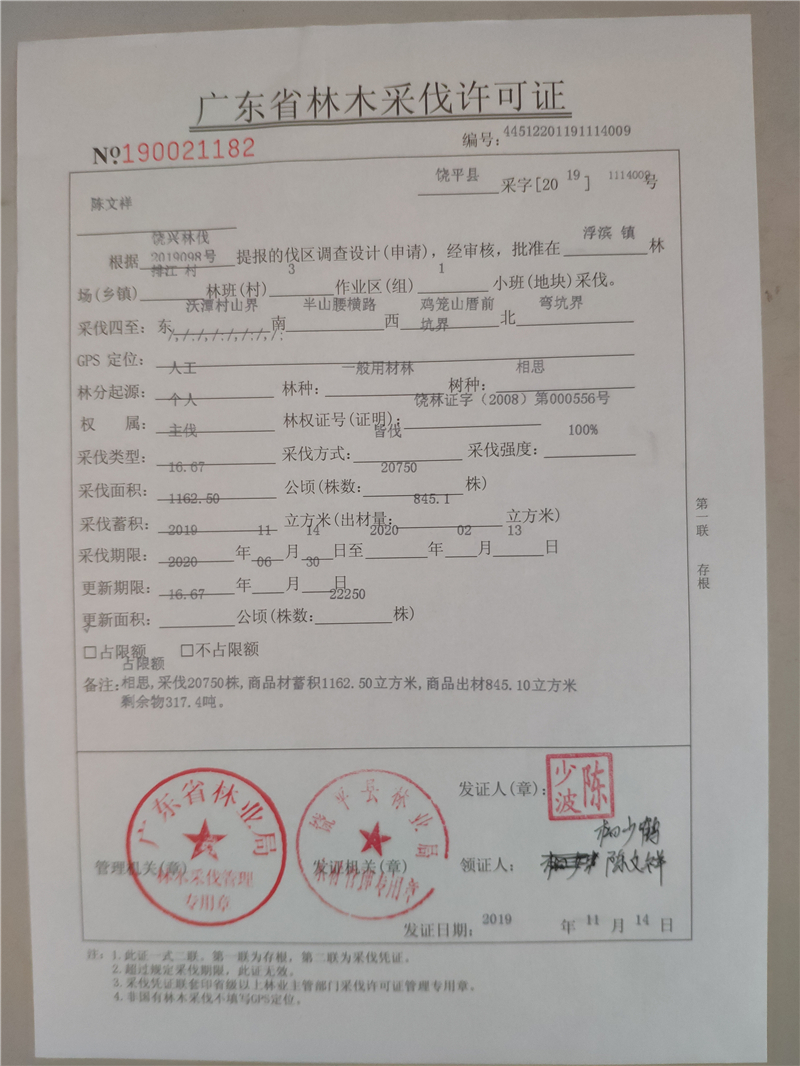 广东省林木采伐许可证
№190021182
编号：44512201191114009
饶平县 采字[2019] 1114009号
陈文祥
根据 饶兴林伐2019098号 提报的伐区调查设计(申请)，经审核，批准在 浮滨 镇 林
场(乡镇) 排江 村 林班(村) 3 作业区(组) 1 小班(地块)采伐。
采伐四至：东 沃潭村山界 南 半山腰横路 西 鸡笼山厝前坑界 北 弯坑界
GPS 定位：/./,/./,/./,/./,/.
林分起源：人工 林种：一般用材林 树种：相思
权 属：个人 林权证号(证明)：饶林证字（2008）第000556号
采伐类型：主伐 采伐方式：皆伐 采伐强度：100%
采伐面积：16.67 公顷(株数：20750 株)
采伐蓄积：1162.50 立方米(出材量：845.1 立方米)
采伐期限：2019 年 11 月 14 日至 2020 年 02 月 13 日
更新期限：2020 年 06 月 30 日
更新面积：16.67 公顷(株数：22250 株)
√
□占限额 □不占限额
占限额
备注：相思,采伐20750株,商品材蓄积1162.50立方米,商品出材845.10立方米
剩余物317.4吨。
第一联 存根
广东省林业局
林木采伐管理
专用章
管理机关(章)
饶平县林业局
发证机关(章)
发证人(章)：陈少波
柳少鹤
领证人：陈文祥
发证日期：2019 年 11 月 14 日
注：1.此证一式二联。第一联为存根，第二联为采伐凭证。
2.超过规定采伐期限，此证无效。
3.采伐凭证联套印省级以上林业主管部门采伐许可证管理专用章。
4.非国有林木采伐不填写GPS定位。